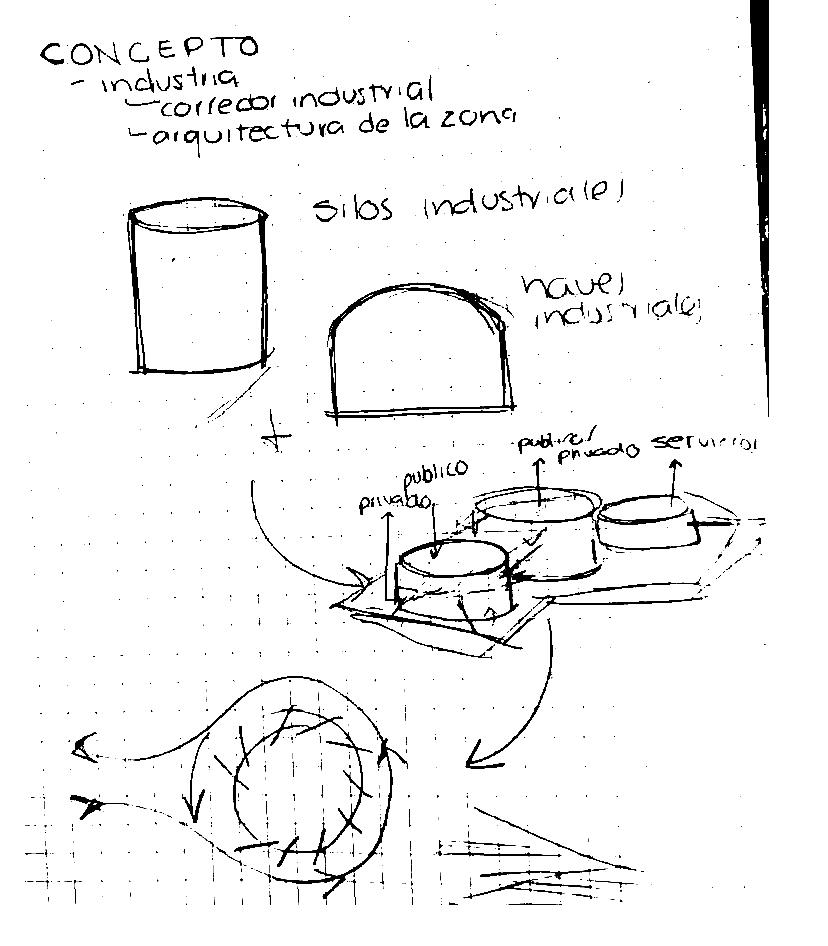 CONCEPTO
- industria
corredor industrial
arquitectura de la zona
silos industriales
naves
industriales
+
publico/
privado
servicios
publico
privado